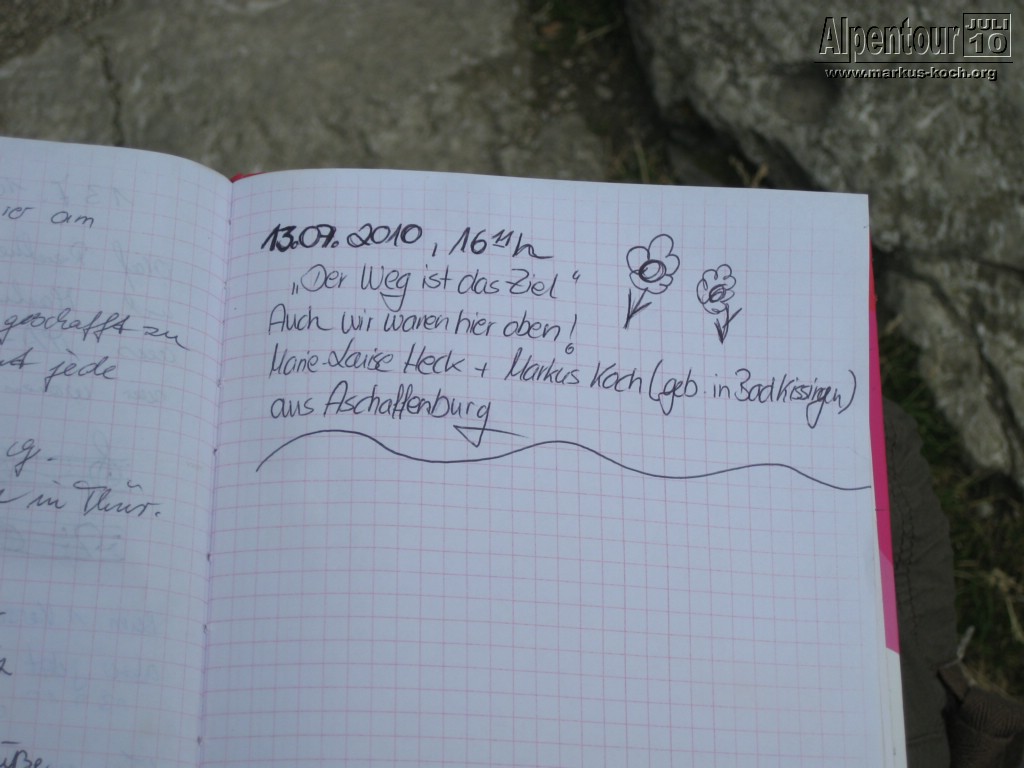 Alpentour JULI 10
www.markus-koch.org
ier am
geschafft zu
jede
g.
in Thür.
13.07.2010, 16 11 h
„Der Weg ist das Ziel“
Auch wir waren hier oben!
Marie-Louise Heck + Markus Koch (geb. in Bad Kissingen)
aus Aschaffenburg